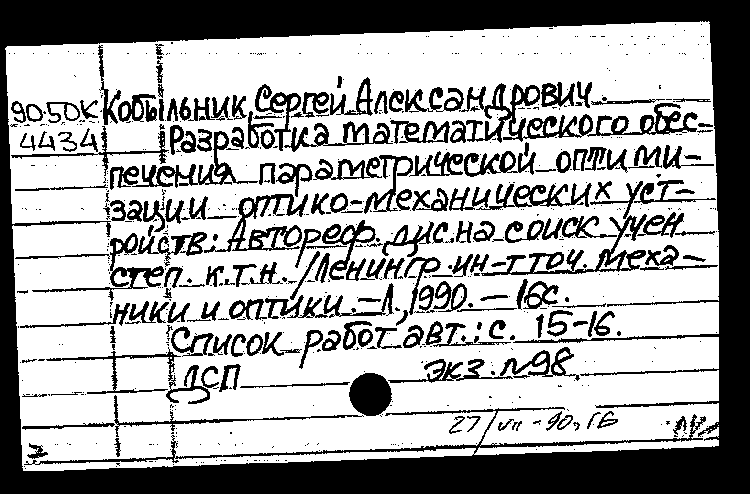 9050К Кобыльник, Сергей Александрович.
4434 Разработка математического обес-
печения параметрической оптими-
зации оптико-механических уст-
ройств: Автореф. дис. на соиск. учен.
степ. к.т.н. /Ленингр. ин-т точ. меха-
ники и оптики. – Л., 1990. – 16с.
Список работ авт.: с. 15-16.
ДСП экз. №98.
27/VII-90г